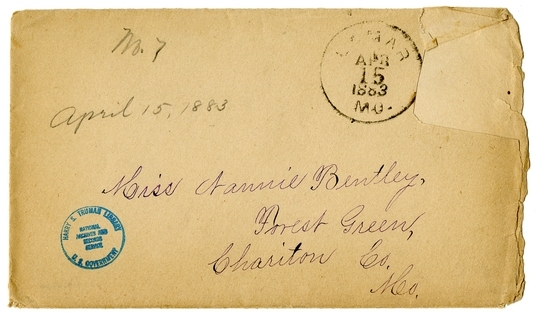 No. 7
LAMAR
APR
15
1883
MO.
April 15, 1883
Miss Nannie Bentley,
Forest Green,
Chariton Co.
Mo.
HARRY S. TRUMAN LIBRARY
NATIONAL
ARCHIVES AND
RECORDS
SERVICE
U. S. GOVERNMENT